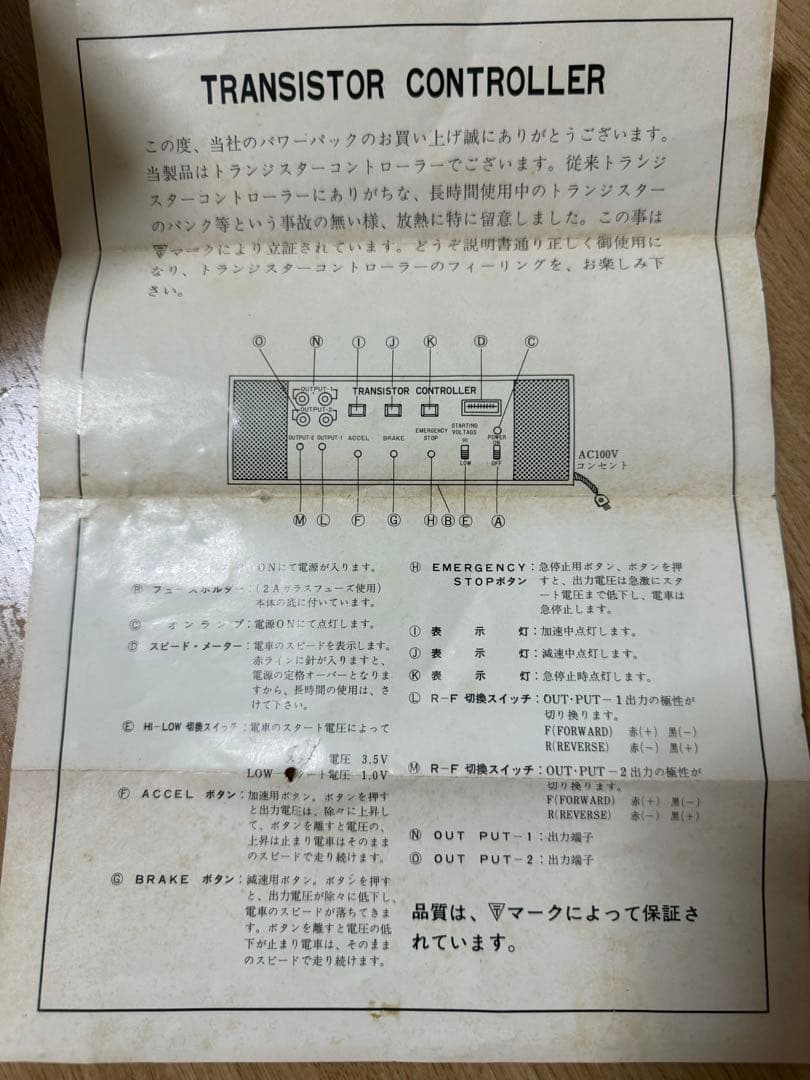 TRANSISTOR CONTROLLER
この度、当社のパワーパックのお買い上げ誠にありがとうございます。
当製品はトランジスターコントローラーでございます。従来トランジ
スターコントローラーにありがちな、長時間使用中のトランジスター
のパンク等という事故の無い様、放熱に特に留意しました。この事は
マークにより立証されています。どうぞ説明書通り正しく御使用に
なり、トランジスターコントローラーのフィーリングを、お楽しみ下
さい。
Ⓞ Ⓝ Ⓘ Ⓙ Ⓚ Ⓓ Ⓒ
OUTPUT-1
TRANSISTOR CONTROLLER
OUTPUT-2
OUTPUT-2 OUTPUT-1 ACCEL BRAKE EMERGENCY STOP STARTING VOLTAGS HI LOW POWER ON OFF
AC100V
コンセント
Ⓜ Ⓛ Ⓕ Ⓖ Ⓗ Ⓑ Ⓔ Ⓐ
ONにて電源が入ります。
Ⓑ フューズホルダー：(2Aガラスフューズ使用)
本体の底に付いています。
Ⓒ オンランプ：電源ONにて点灯します。
Ⓓ スピード・メーター：電車のスピードを表示します。
赤ラインに針が入りますと、
電源の定格オーバーとなりま
すから、長時間の使用は、さ
けて下さい。
Ⓔ HI-LOW 切換スイッチ：電車のスタート電圧によって
電圧 3.5V
LOW ート電圧 1.0V
Ⓕ ACCEL ボタン：加速用ボタン。ボタンを押す
と出力電圧は、除々に上昇し
て、ボタンを離すと電圧の、
上昇は止まり電車はそのまま
のスピードで走り続けます。
Ⓖ BRAKE ボタン：減速用ボタン。ボタンを押す
と、出力電圧が除々に低下し、
電車のスピードが落ちてきま
す。ボタンを離すと電圧の低
下が止まり電車は、そのまま
のスピードで走り続けます。
Ⓗ EMERGENCY：急停止用ボタン、ボタンを押
STOPボタン すと、出力電圧は急激にスタ
ート電圧まで低下し、電車は
急停止します。
Ⓘ 表示灯：加速中点灯します。
Ⓙ 表示灯：減速中点灯します。
Ⓚ 表示灯：急停止時点灯します。
Ⓛ R-F 切換スイッチ：OUT・PUT-1出力の極性が
切り換ります。
F(FORWARD) 赤(+) 黒(-)
R(REVERSE) 赤(-) 黒(+)
Ⓜ R-F 切換スイッチ：OUT・PUT-2出力の極性が
切り換ります。
F(FORWARD) 赤(+) 黒(-)
R(REVERSE) 赤(-) 黒(+)
Ⓝ OUT PUT-1：出力端子
Ⓞ OUT PUT-2：出力端子
品質は、マークによって保証さ
れています。